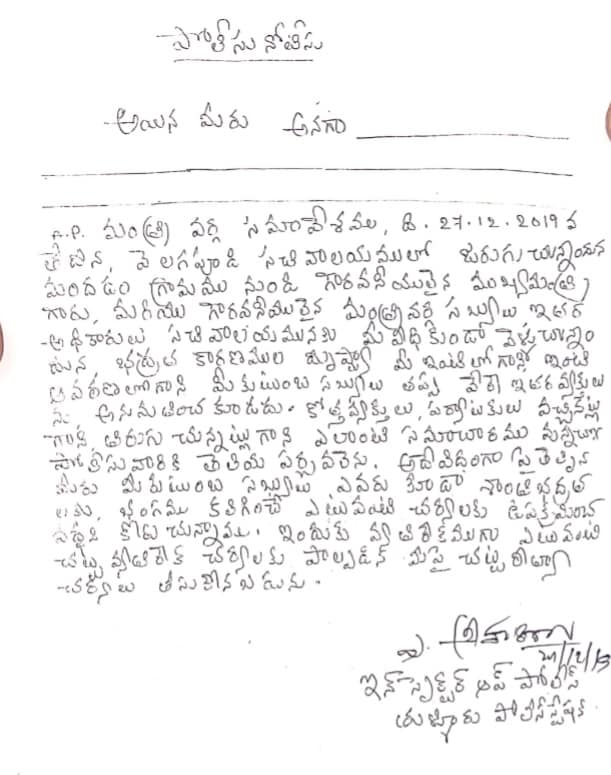 పోలీసు నోటీసు
అయిన మీరు అనగా
A.P. మంత్రి వర్గ సమావేశము, ది. 27.12.2019 వ
తేదీన, వెలగపూడి సచివాలయములో జరుగుచున్నందున
మందడం గ్రామము నుండి గౌరవనీయులైన ముఖ్యమంత్రి
గారు, మరియు గౌరవనీయులైన మంత్రివర్గ సభ్యులు ఇతర
అధికారులు సచివాలయమునకు మీ వీధి కుండా వెళ్ళుచున్నం
దున భద్రత కారణముల దృష్ట్యా మీ ఇంటిలో గాని ఇంటి
ఆవరణలోగాని మీ కుటుంబ సభ్యులు తప్ప వేరే ఇతర వ్యక్తులు
ను అనుమతించ కూడదు. కొత్త వ్యక్తులు, పర్యాటకులు వచ్చినట్లు
గాని, తిరుగు చున్నట్లుగాని ఎలాంటి సమాచారము వున్ననూ
పోలీసు వారికి తెలియ పర్చవలెను. అదేవిధంగా పై తెల్పిన
మీరు మీ కుటుంబ సభ్యులు ఎవరు కూడా శాంతిభద్రత
లకు, భంగము కలిగించే ఎటువంటి చర్యలకు ఉపక్రమించ
వద్దని కోరుచున్నాము. ఇందుకు వ్యతిరేకముగా ఎటువంటి
చట్ట వ్యతిరేక చర్యలకు పాల్పడిన మీపై చట్టరీత్యా
చర్యలు తీసుకొనబడును.
ఇన్స్పెక్టర్ ఆఫ్ పోలీస్
తుళ్ళూరు పోలీస్ స్టేషన్.